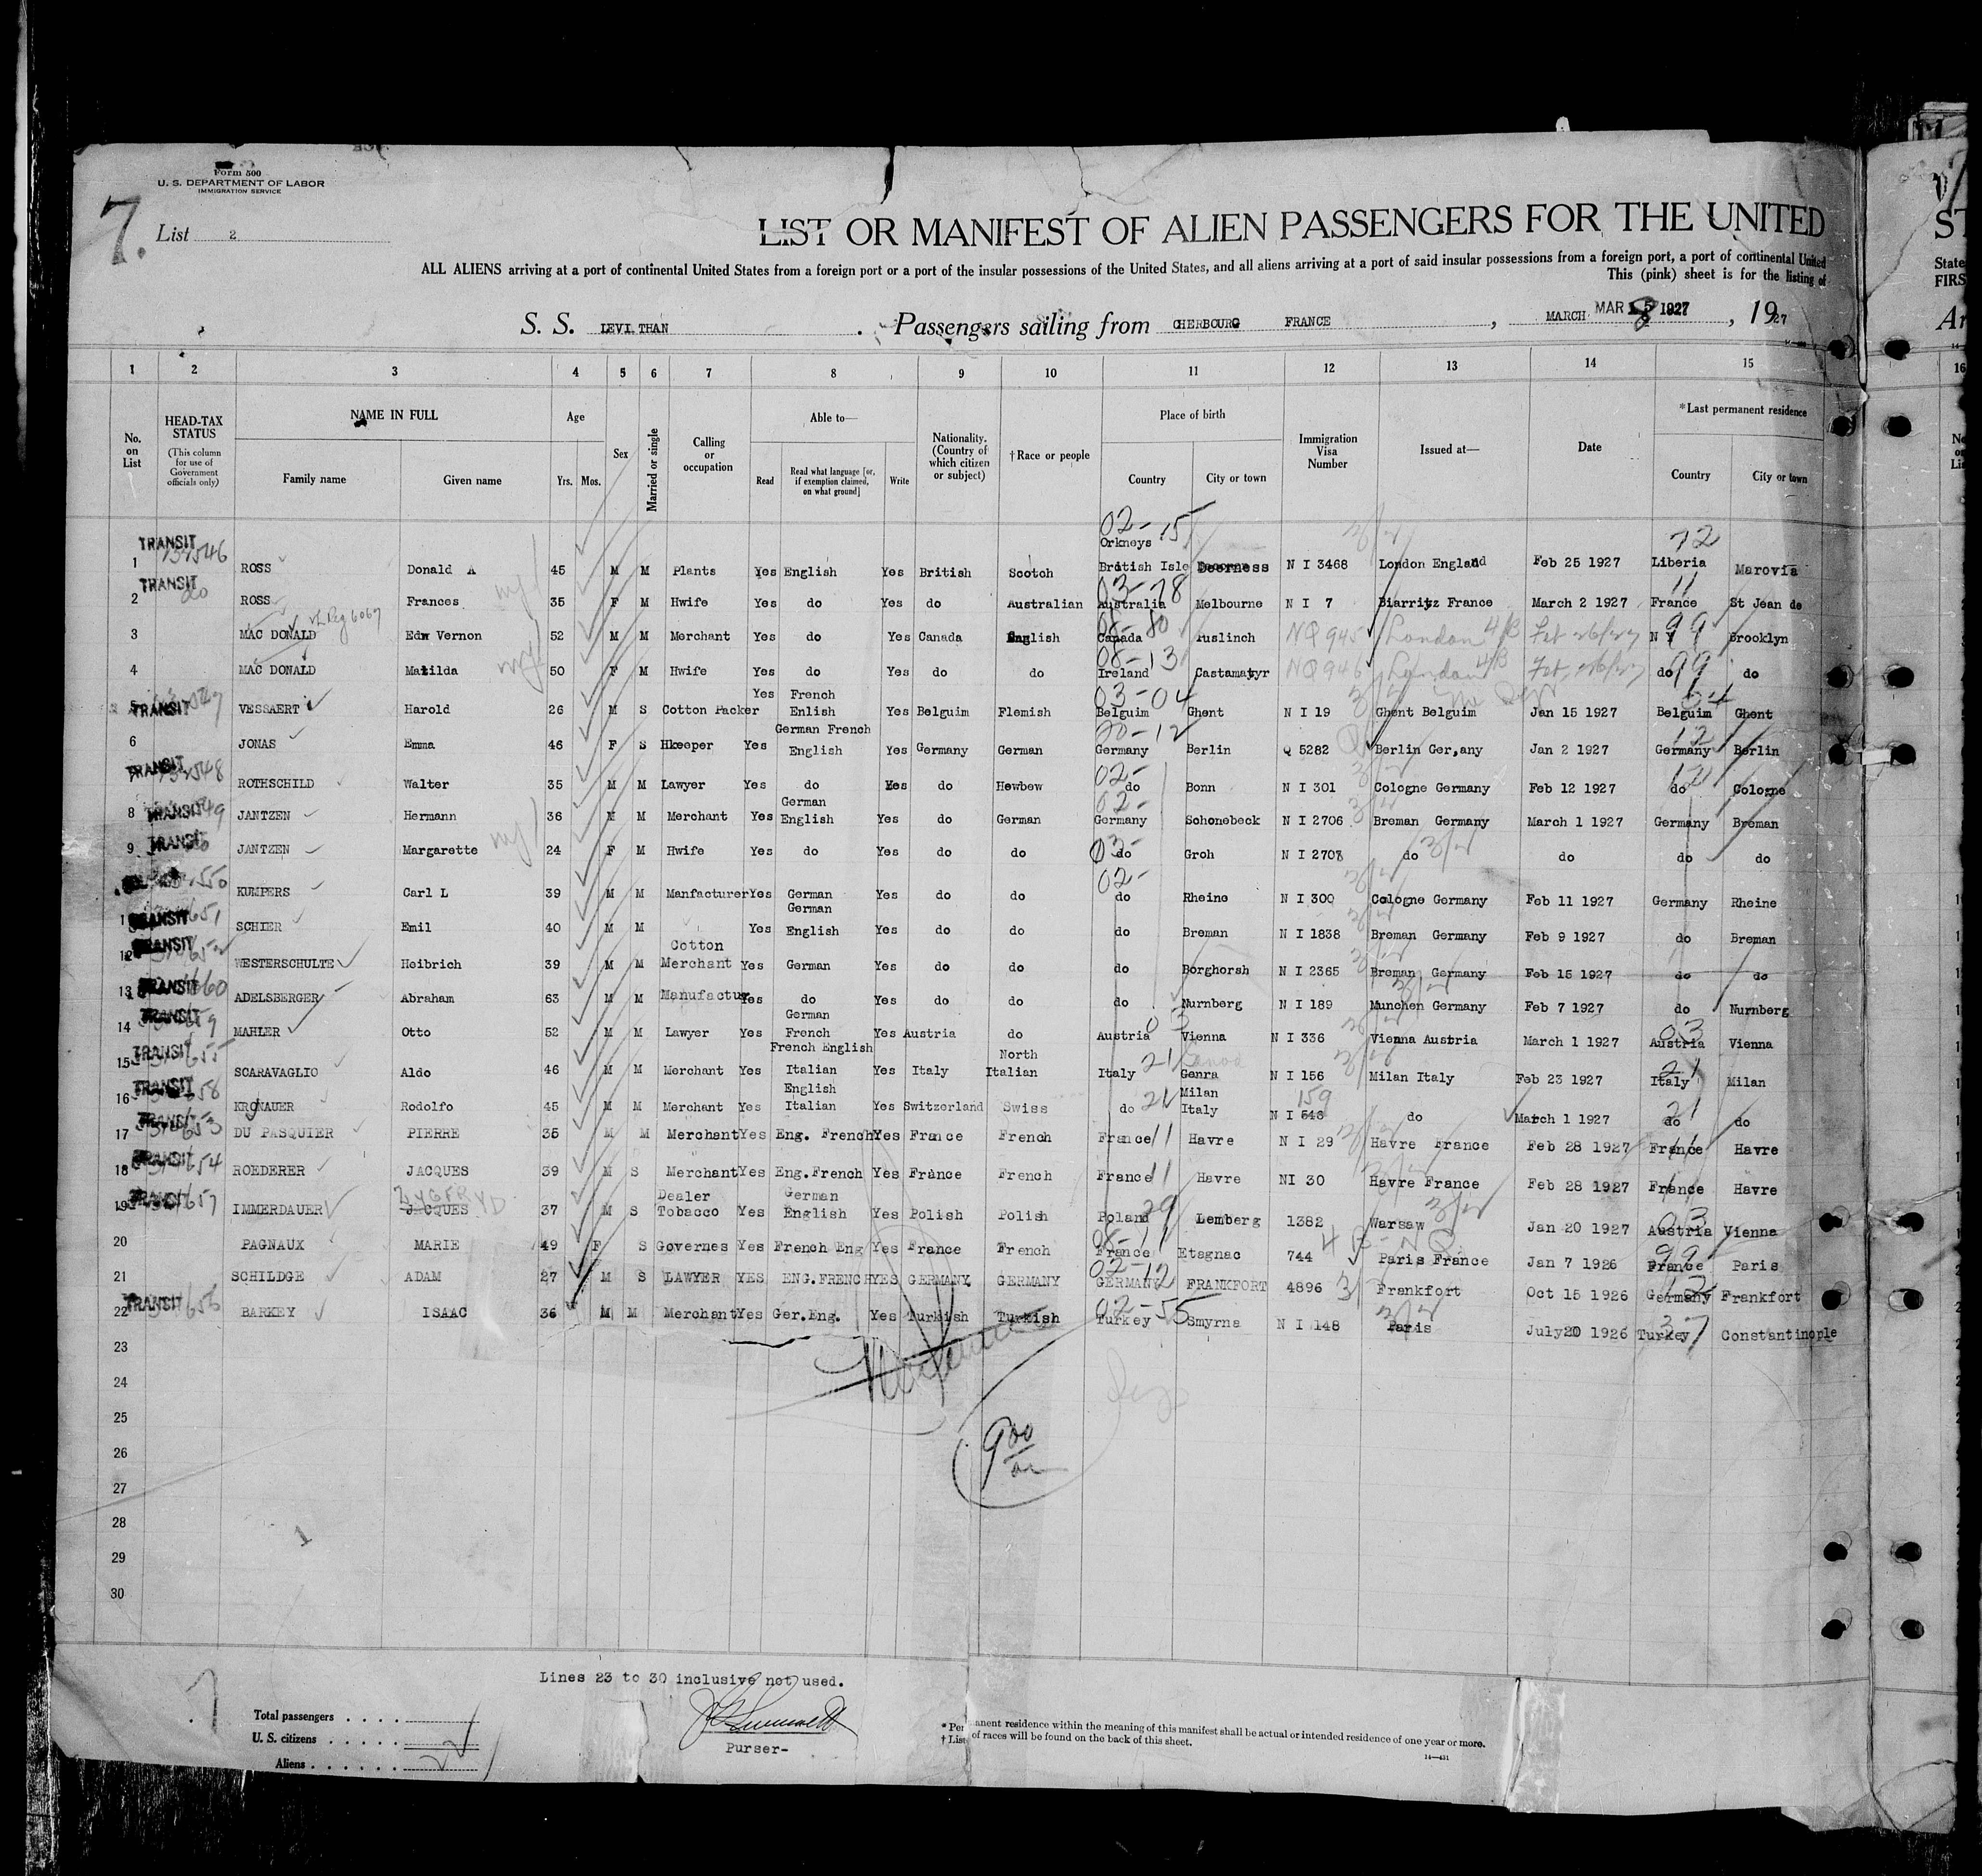 Form 500
U. S. DEPARTMENT OF LABOR
IMMIGRATION SERVICE
7.
List 2
LIST OR MANIFEST OF ALIEN PASSENGERS FOR THE UNITED
ST
ALL ALIENS arriving at a port of continental United States from a foreign port or a port of the insular possessions of the United States, and all aliens arriving at a port of said insular possessions from a foreign port, a port of continental United
State
This (pink) sheet is for the listing of
FIRS
S. S. LEVI THAN . Passengers sailing from CHERBOURG FRANCE , MARCH MAR 8 1927 , 1927
Ar
1 2 3 4 5 6 7 8 9 10 11 12 13 14 15 16
No. on List
HEAD-TAX STATUS (This column for use of Government officials only)
NAME IN FULL
Family name Given name
Age Yrs. Mos.
Sex
Married or single
Calling or occupation
Able to—
Read Read what language [or, if exemption claimed, on what ground] Write
Nationality. (Country of which citizen or subject)
†Race or people
Place of birth
Country City or town
Immigration Visa Number
Issued at—
Date
*Last permanent residence
Country City or town
02- 15 72
TRANSIT Orkneys
1 ROSS Donald A 45 M M Plants Yes English Yes British Scotch British Isle Deerness N I 3468 London England Feb 25 1927 Liberia Marovia
TRANSIT do 03-78 11
2 ROSS Frances 35 F M Hwife Yes do Yes do Australian Australia Melbourne N I 7 Biarritz France March 2 1927 France St Jean de
3 MAC DONALD Edw Vernon 52 M M Merchant Yes do Yes Canada English Canada Puslinch NQ 945 London 4/B Feb 26/27 N Y 99 Brooklyn
08-13
4 MAC DONALD Matilda 50 F M Hwife Yes do Yes do do Ireland Castamatyr NQ 946 London 4/B Feb 26/27 do 99 do
Yes French 03-04
5 TRANSIT VESSAERT Harold 26 M S Cotton Packer Enlish Yes Belguim Flemish Belguim Ghent N I 19 Ghent Belguim Jan 15 1927 Belguim Ghent
German French 20-12 12
6 JONAS Emma 46 F S Hkeeper Yes English Yes Germany German Germany Berlin Q 5282 Berlin Ger,any Jan 2 1927 Germany Berlin
TRANSIT 02-
ROTHSCHILD Walter 35 M M Lawyer Yes do Yes do Hewbew do Bonn N I 301 Cologne Germany Feb 12 1927 do Cologne
German 02-
8 TRANSIT JANTZEN Hermann 36 M M Merchant Yes English Yes do German Germany Schonebeck N I 2706 Breman Germany March 1 1927 Germany Breman
9 TRANSIT JANTZEN Margarette 24 F M Hwife Yes do Yes do do 03- do Groh N I 2707 do do do do
02-
KUMPERS Carl L 39 M M Manfacturer Yes German Yes do do do Rheine N I 300 Cologne Germany Feb 11 1927 Germany Rheine
German
TRANSIT SCHIER Emil 40 M M Yes English Yes do do do Breman N I 1838 Breman Germany Feb 9 1927 do Breman
Cotton
12 TRANSIT WESTERSCHULTE Heibrich 39 M M Merchant Yes German Yes do do do Borghorsh N I 2365 Breman Germany Feb 15 1927 do do
13 TRANSIT ADELSBERGER Abraham 63 M M Manufactur Yes do Yes do do do Nurnberg N I 189 Munchen Germany Feb 7 1927 do Nurnberg
TRANSIT German 03 03
14 MAHLER Otto 52 M M Lawyer Yes French Yes Austria do Austria Vienna N I 336 Vienna Austria March 1 1927 Austria Vienna
TRANSIT French English North
15 SCARAVAGLIO Aldo 46 M M Merchant Yes Italian Yes Italy Italian Italy 21 Genra N I 156 Milan Italy Feb 23 1927 Italy 21 Milan
TRANSIT English Milan 159
16 KRONAUER Rodolfo 45 M M Merchant Yes Italian Yes Switzerland Swiss do 21 Italy N I do March 1 1927 do 21 do
TRANSIT
17 DU PASQUIER PIERRE 35 M M Merchant Yes Eng. French Yes France French France 11 Havre N I 29 Havre France Feb 28 1927 France 11 Havre
TRANSIT
18 ROEDERER JACQUES 39 M S Merchant Yes Eng.French Yes France French France 11 Havre NI 30 Havre France Feb 28 1927 France 11 Havre
TRANSIT ZYGFRYD Dealer German
19 IMMERDAUER JACQUES 37 M S Tobacco Yes English Yes Polish Polish Poland 29 Lemberg 1382 Warsaw Jan 20 1927 Austria 03 Vienna
20 PAGNAUX MARIE 49 F S Governes Yes French Eng Yes France French France 08-11 Etagnac 744 4 B-NQ Paris France Jan 7 1926 France 99 Paris
02-12
21 SCHILDGE ADAM 27 M S LAWYER YES ENG.FRENCH YES GERMANY GERMANY GERMANY FRANKFORT 4896 Frankfort Oct 15 1926 Germany 12 Frankfort
TRANSIT 656
22 BARKEY ISAAC 36 M M Merchant Yes Ger.Eng. Yes Turkish Turkish Turkey 02-55 Smyrna N I 148 Paris July 20 1926 Turkey 37 Constantinople
23
24
25
26
27
28
29
30
Lines 23 to 30 inclusive not used.
Purser-
Total passengers
U. S. citizens
Aliens 22
* Permanent residence within the meaning of this manifest shall be actual or intended residence of one year or more.
† List of races will be found on the back of this sheet.